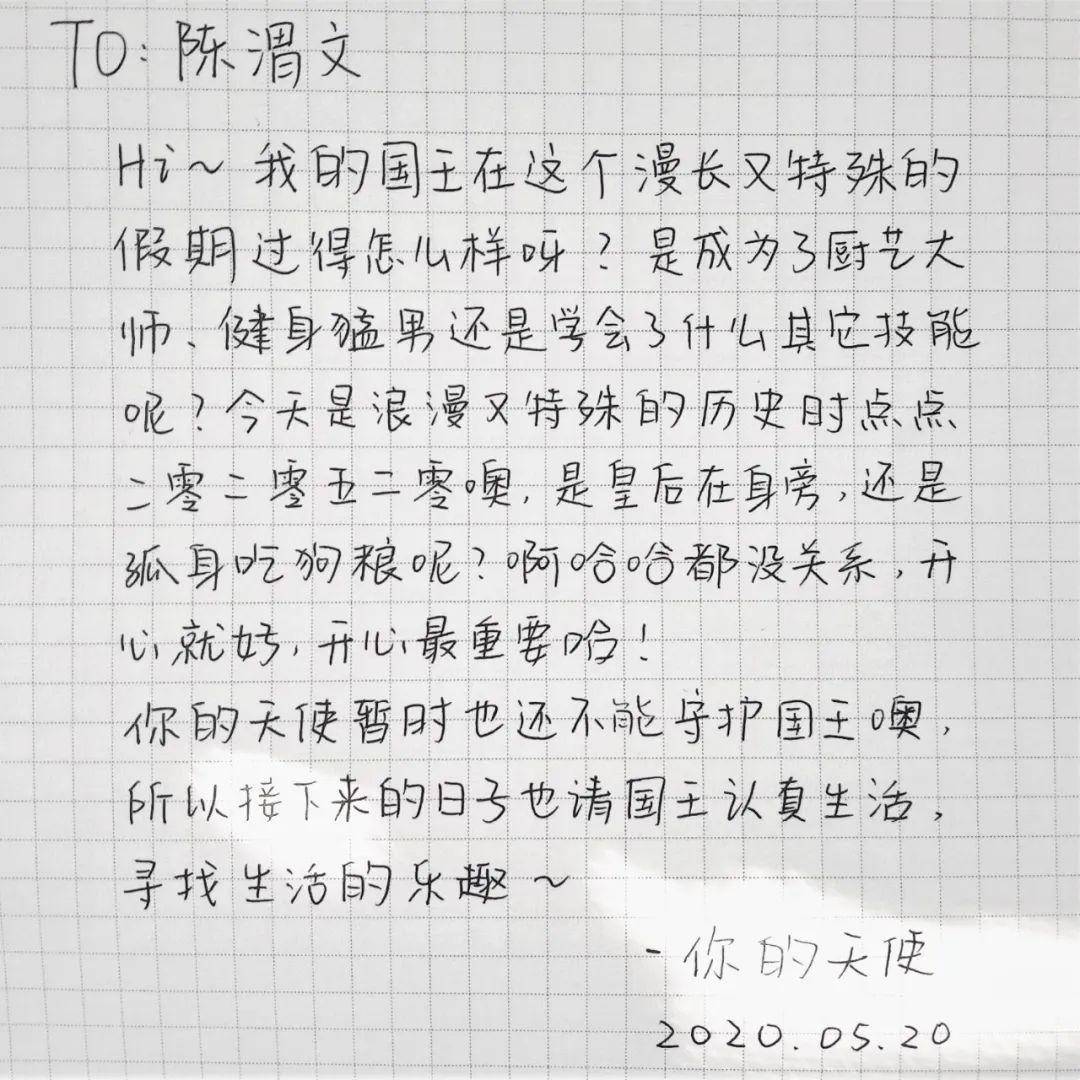 TO: 陈渭文
Hi~ 我的国王在这个漫长又特殊的
假期过得怎么样呀?是成为了厨艺大
师、健身猛男还是学会了什么其它技能
呢?今天是浪漫又特殊的历史时点点
二零二零五二零噢,是皇后在身旁,还是
孤身吃狗粮呢?啊哈哈都没关系,开
心就好,开心最重要哈!
你的天使暂时也还不能守护国王噢,
所以接下来的日子也请国王认真生活,
寻找生活的乐趣~
- 你的天使
2020.05.20